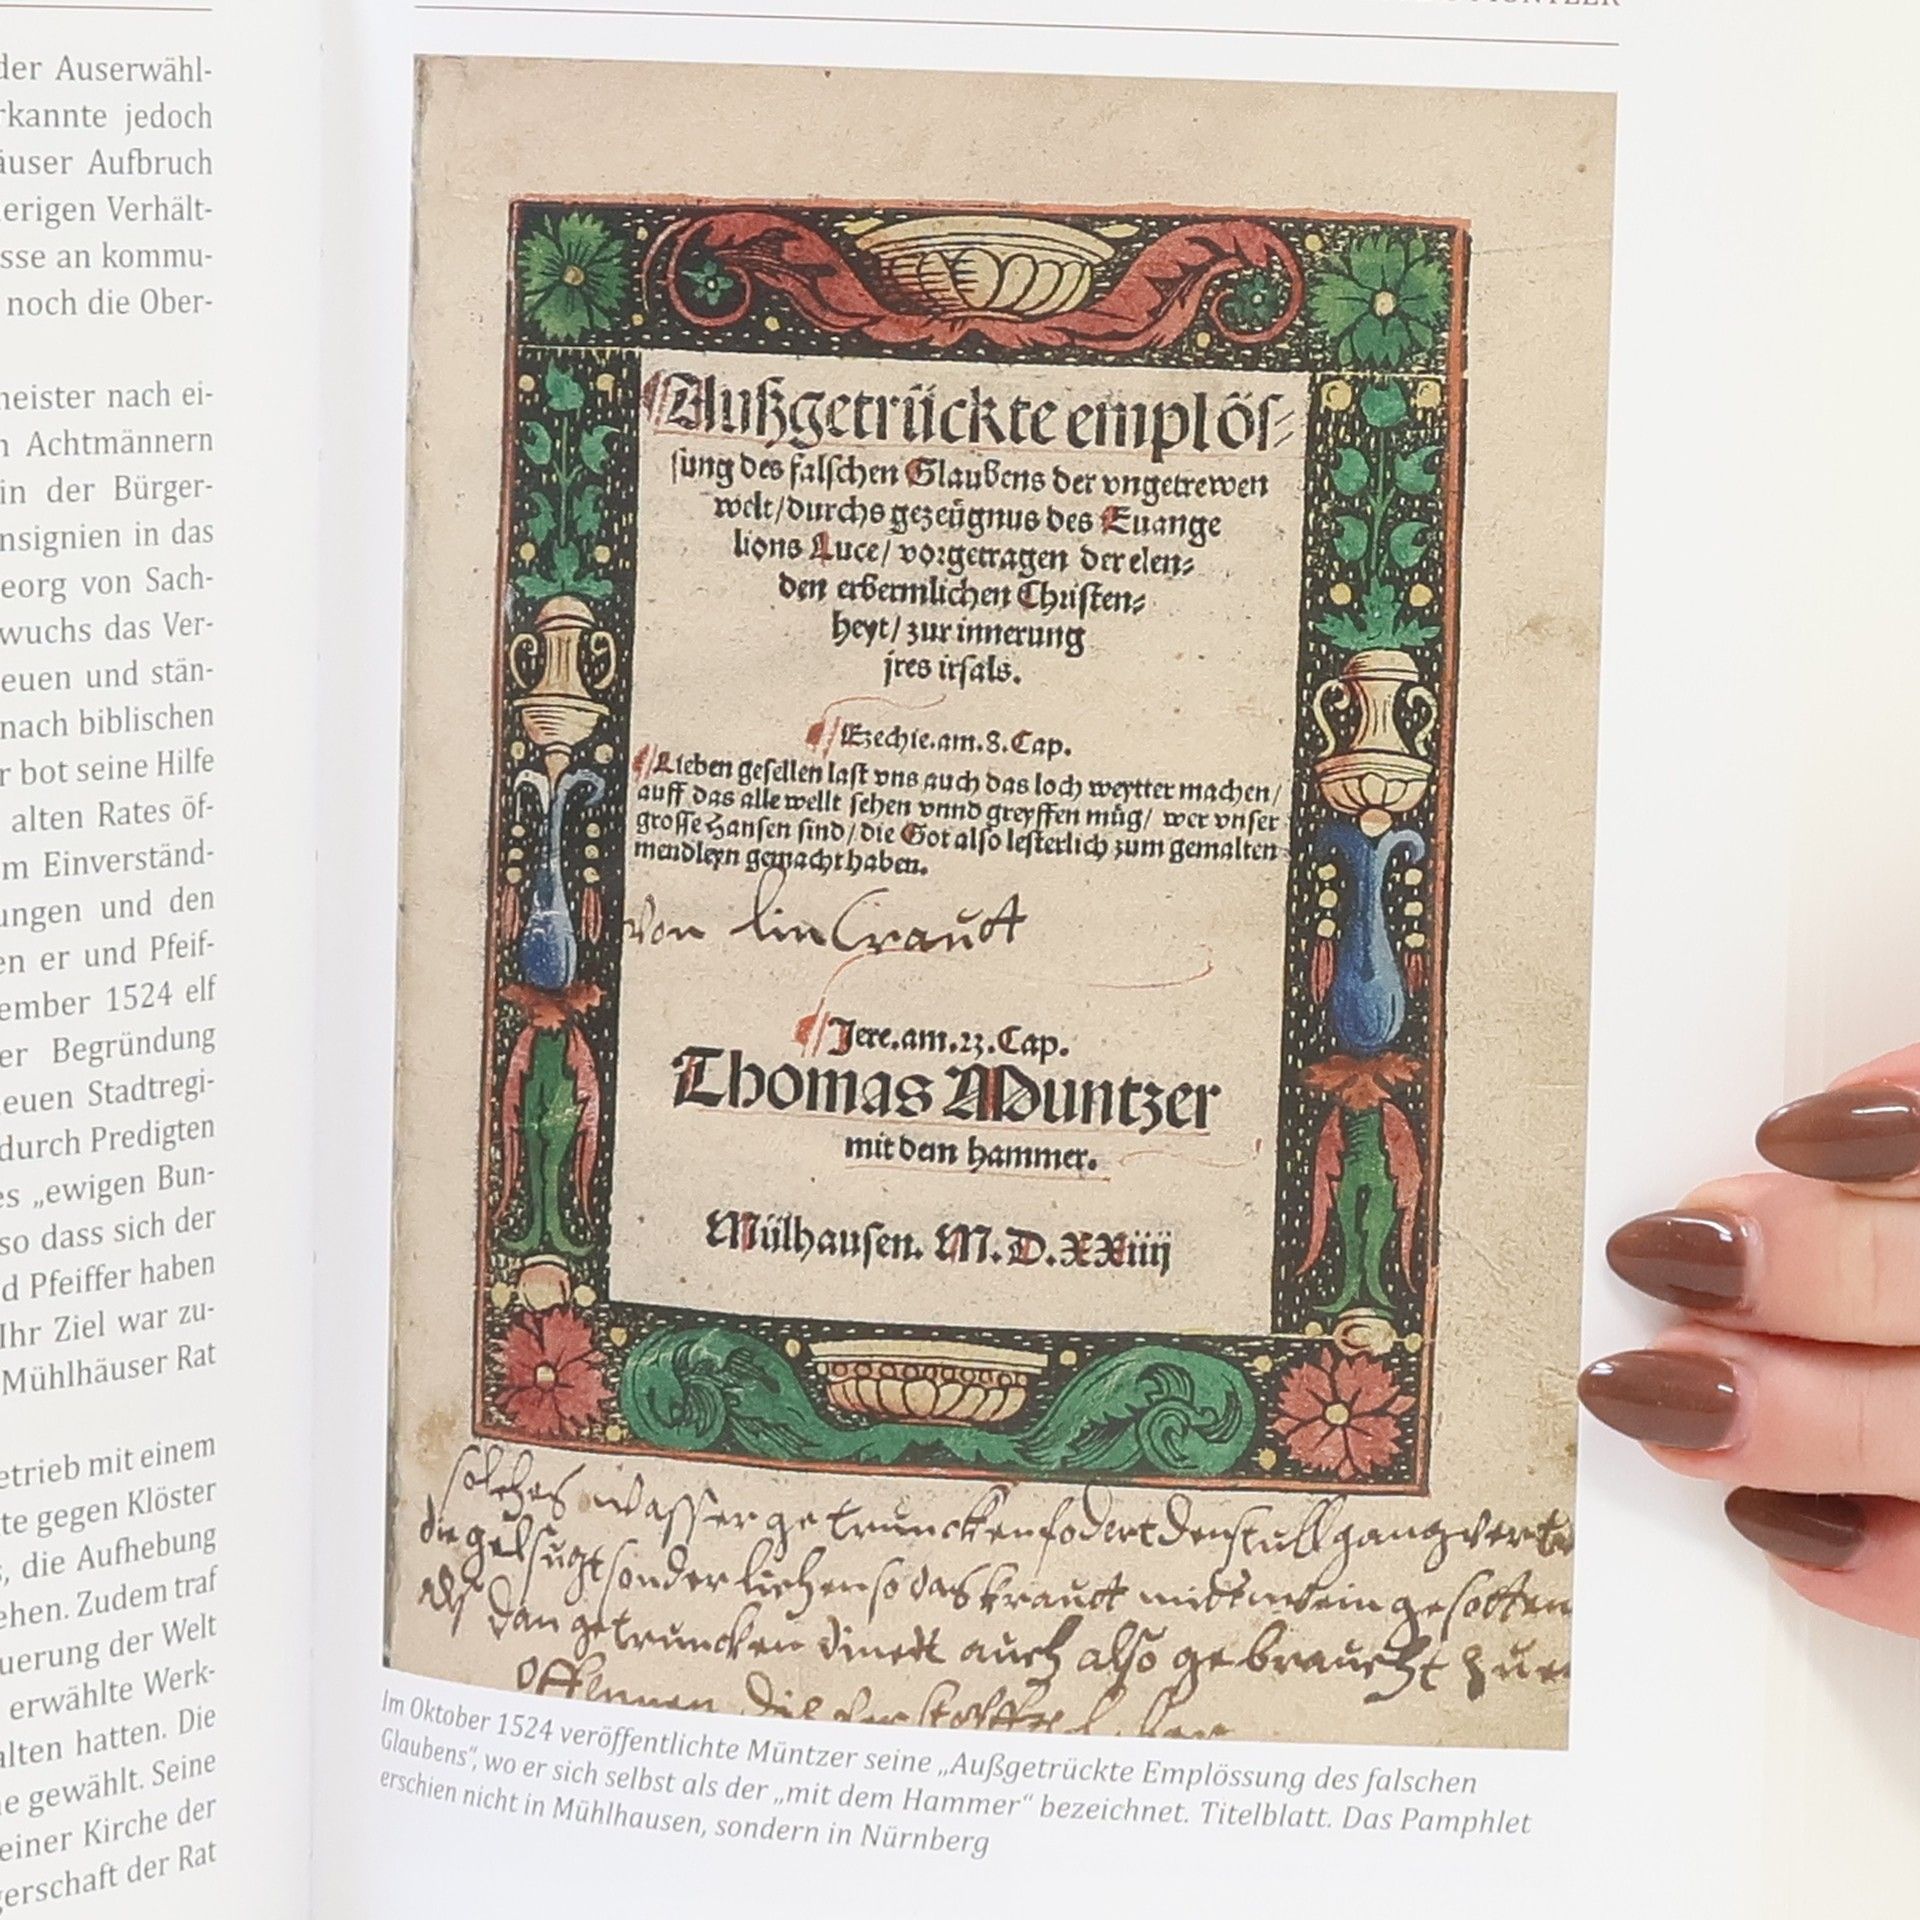 der Auserwähl-
rkannte jedoch
äuser Aufbruch
erigen Verhält-
sse an kommu-
noch die Ober-
neister nach ei-
n Achtmännern
in der Bürger-
nsignien in das
eorg von Sach-
wuchs das Ver-
euen und stän-
nach biblischen
r bot seine Hilfe
alten Rates öf-
m Einverständ-
ungen und den
en er und Pfeif-
ember 1524 elf
er Begründung
euen Stadtregi-
durch Predigten
es „ewigen Bun-
so dass sich der
d Pfeiffer haben
Ihr Ziel war zu-
Mühlhäuser Rat
etrieb mit einem
te gegen Klöster
s, die Aufhebung
ehen. Zudem traf
uerung der Welt
erwählte Werk-
alten hatten. Die
e gewählt. Seine
einer Kirche der
gerschaft der Rat
Außgetrückte emplöſ-
ſung des falſchen Glaubens der vngetrewen
welt/durchs gezeügnus des Euange
lions Luce/ vorgetragen der elen-
den erbermlichen Chriſten-
heyt/ zur innerung
jres irſals.
Ezechie.am.8.Cap.
Lieben geſellen laſt vns auch das loch weytter machen/
auff das alle wellt ſehen vnnd greyffen müg/ wer vnſer
groſſe Hanſen ſind/die Got alſo leſterlich zum gemalten
mendleyn gemacht haben.
von Lin Crautt
Jere.am.23.Cap.
Thomas Muntzer
mit dem hammer.
Mülhauſen. M.D.XXiiij
solches wasser getrunncken fodert den stullgang vert
die gelsugt sonderlichen so das krautt mitt wein gesotten
dan getruncken auch also gebraucht zue
Im Oktober 1524 veröffentlichte Müntzer seine „Außgetrückte Emplössung des falschen
Glaubens“, wo er sich selbst als der „mit dem Hammer“ bezeichnet. Titelblatt. Das Pamphlet
erschien nicht in Mühlhausen, sondern in Nürnberg